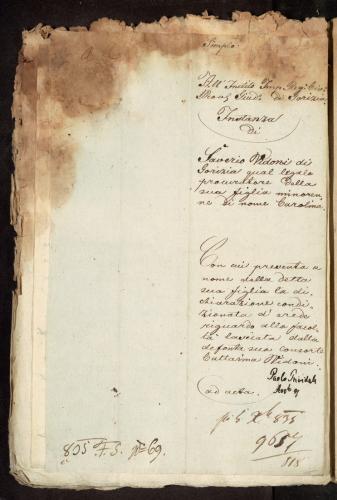 Simplo
All' Inclito Imp. Reg. Civ.
Prov. Giud. di Gorizia
Instanza
di
Saverio Vidoni di
Gorizia qual legale
procuratore della
sua figlia minoren-
ne di nome Carolina.
Con cui presenta a
nome della detta
sua figlia la di-
chiarazione condi-
zionata d'erede
riguardo alla facol-
tà lasciata dalla
defonta sua consorte
Vidoni.
ad acta.
835
9657
805 F. S. 69.